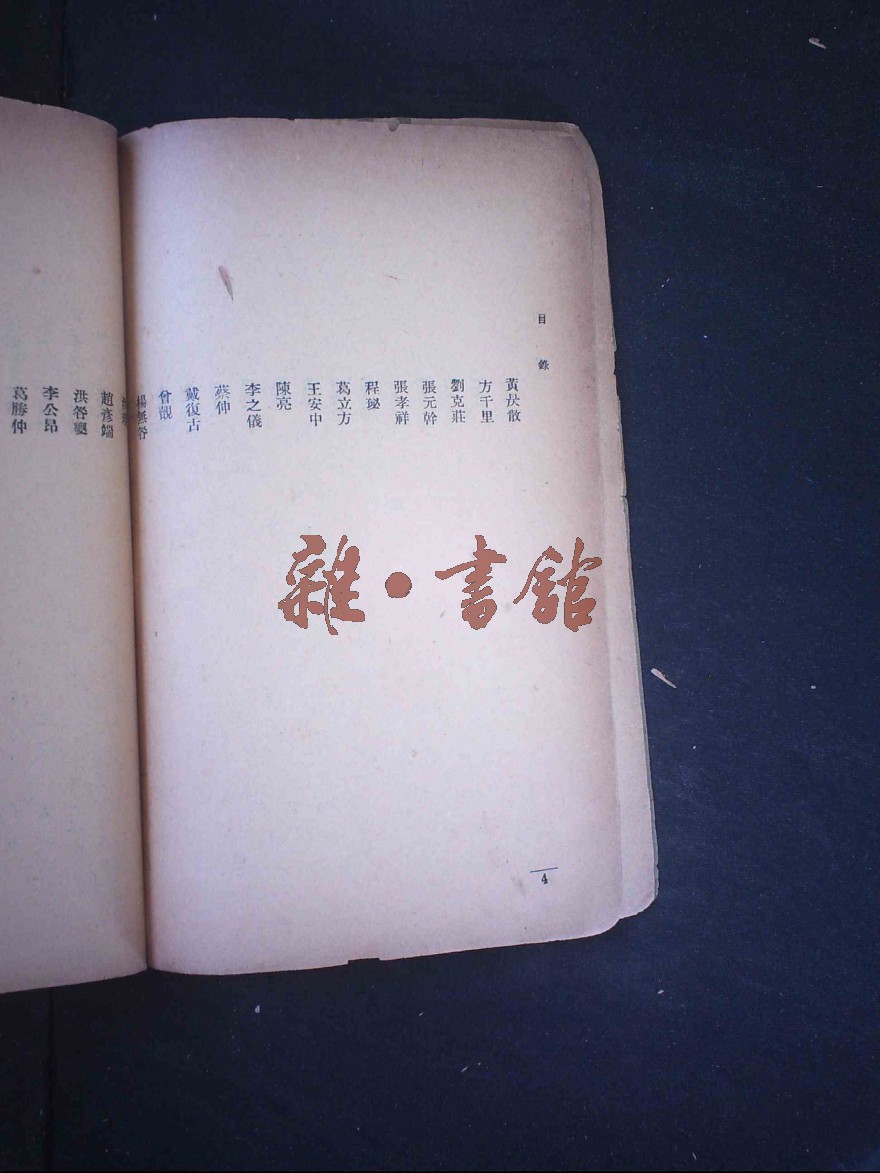 目錄
黃公度
方千里
劉克莊
張元幹
張孝祥
程珌
葛立方
王安中
陳亮
李之儀
蔡伸
戴復古
曾覿
楊無咎
趙彥端
洪咨夔
李公昂
葛勝仲
雜·書館
4